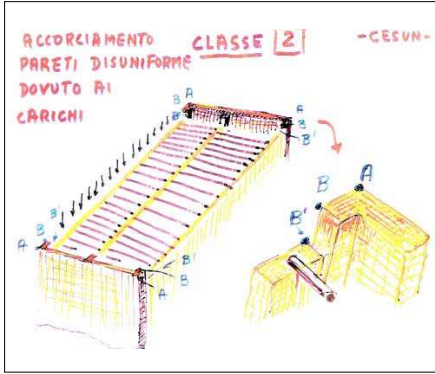 ACCORCIAMENTO
PARETI DISUNIFORME
DOVUTO AI
CARICHI
CLASSE 2
-CESUN-
B A
B'
A
B
B'
A B B'
B'
B
A
B A
B'